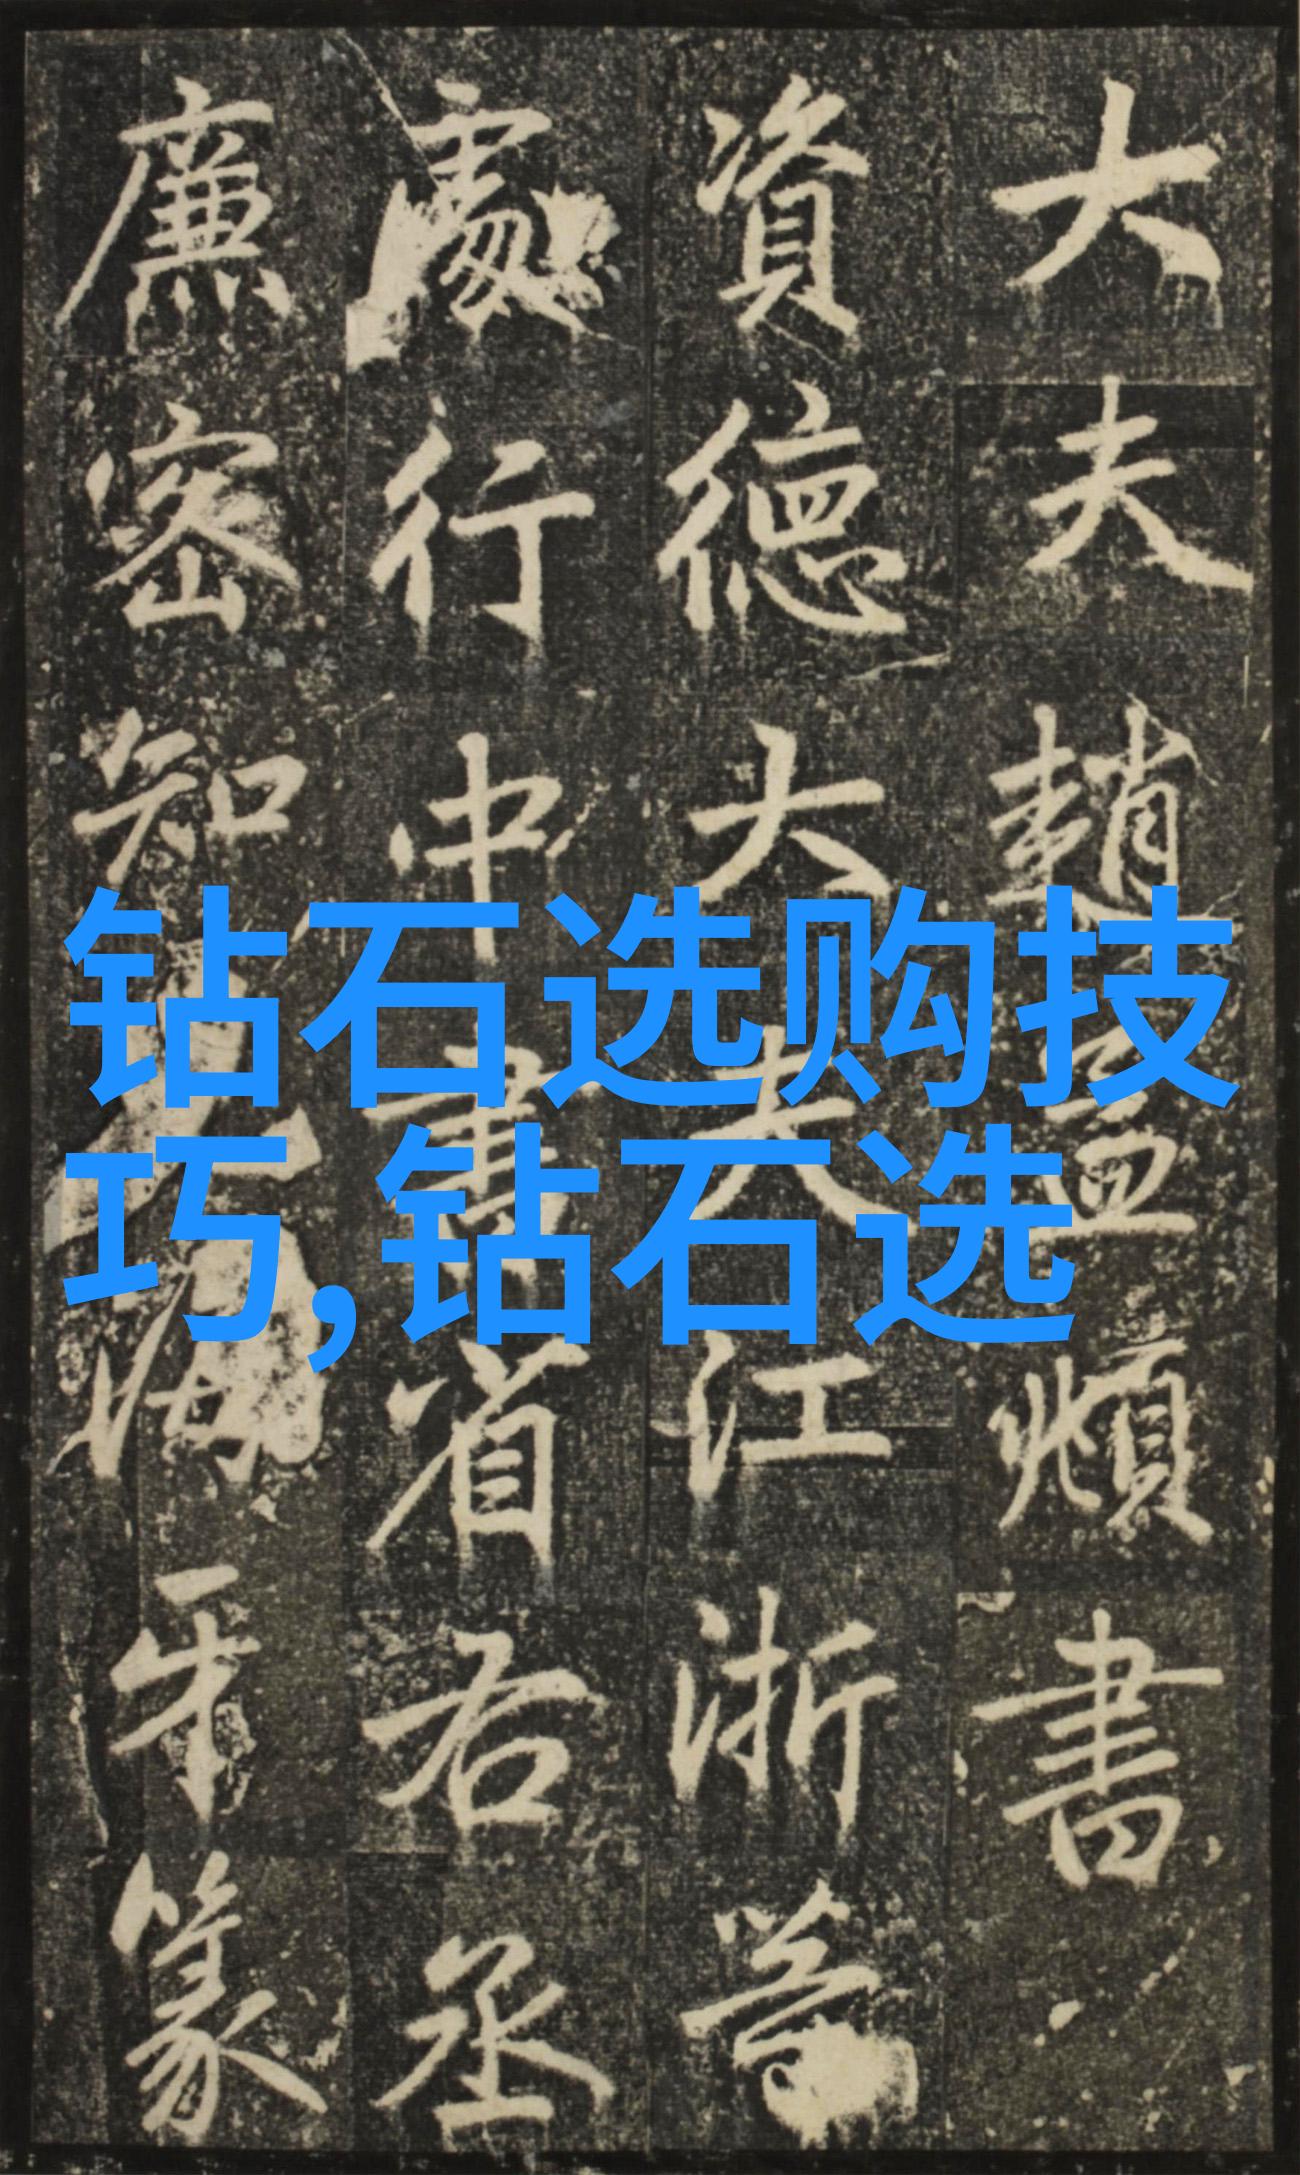 钻石选购技
巧,钻石选
大夫趙孟頫書
資德大夫江浙等
處行中書省右丞
廉密知海牙篆